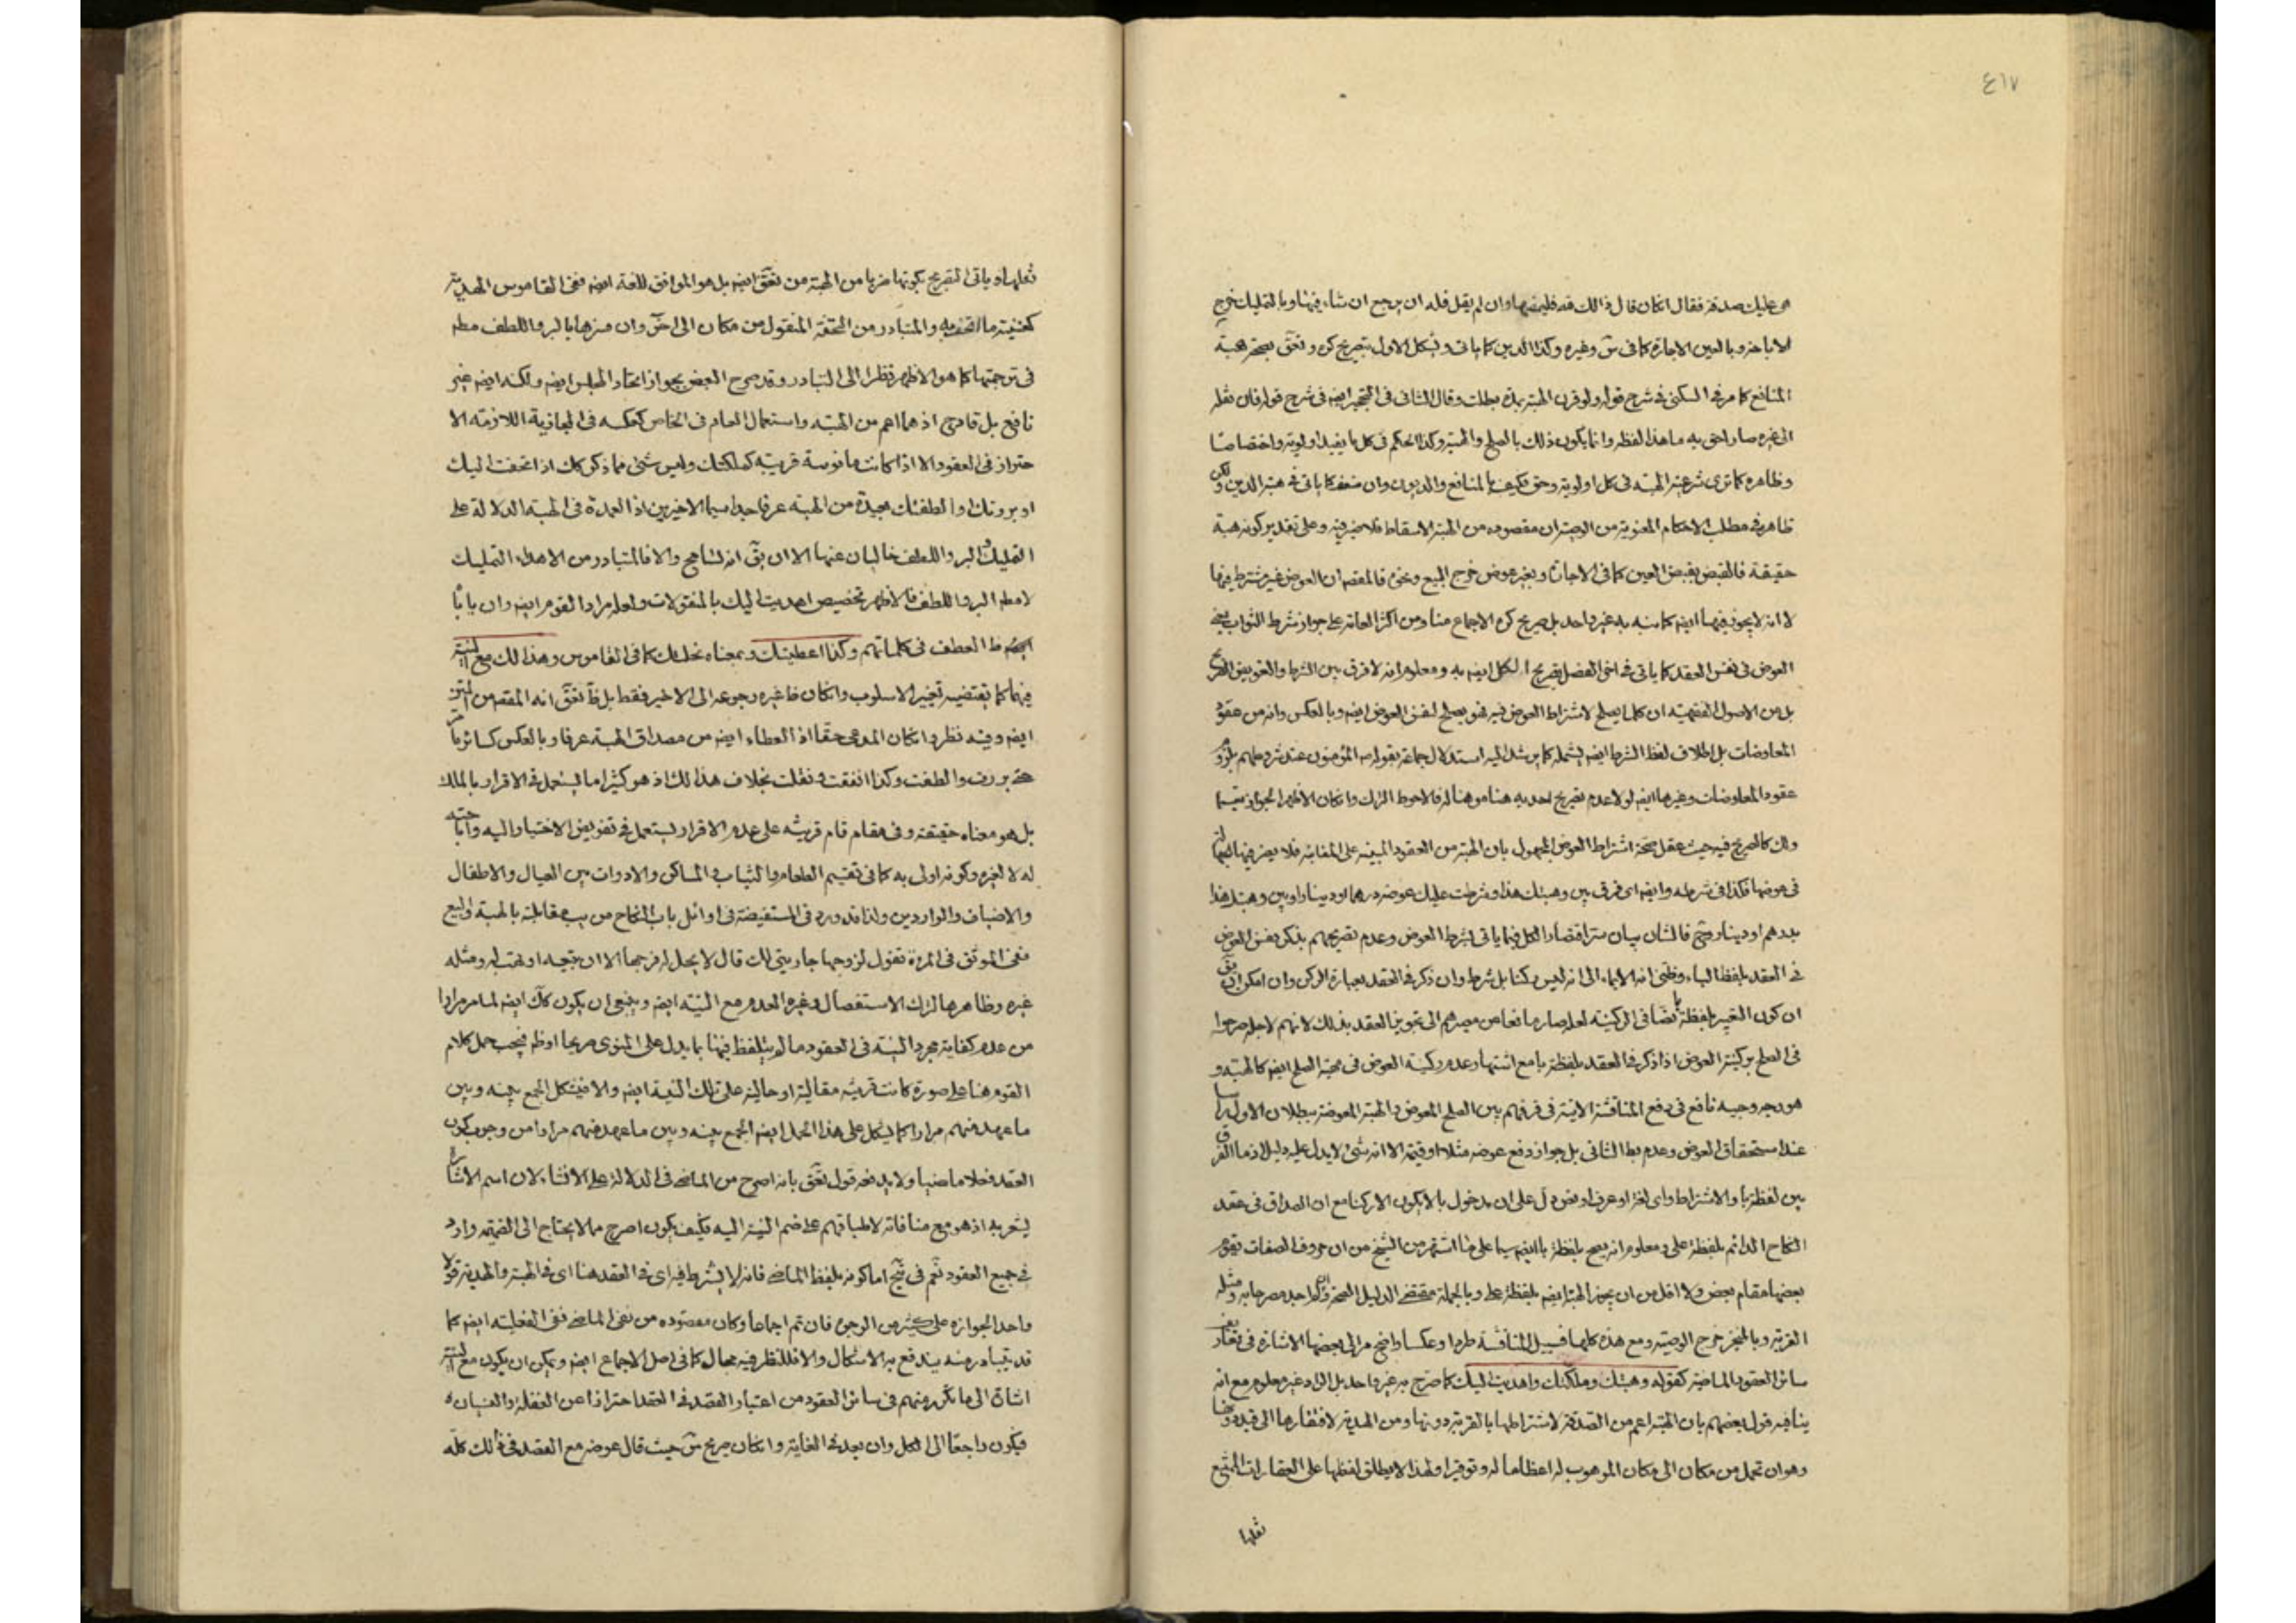 ٤١٧
هى عليك صدقة فقال ان كان قال ذالك قه فليمضها وان لم يقل فله ان يرجع ان شاء فيها وبا لتمليك خرج
الاباحة وبالعين الاجارة كما فى وغيره وكذا الدين كما ياتى و الاول بتصريح كره و بصحة هبة
المنافع كما مر فى السكنى فى شرح قوله ولو قرن الهبة بمدة بطلت وقال الثانى فى التحجير ايضا فى شرح قوله فان نقله
الى غيره صار احق به ما هذا لفظه وانما يكون ذلك بالصلح والهبة وكذا الحكم فى كل ما يفيد اولوية واختصاصا
وظاهره كما ترى شرعية الهبة فى كل اولوية وحق فكيف بالمنافع والديون وان ضعف كما ياتى فى هبة الدين ولكن
ظاهره فى مطلب الاحكام المعنوية من الوصية ان مقصوده من الهبة الاسقاط فلا ضير فيه وعلى تقدير كونه هبة
حقيقة فالقبض بقبض العين كما فى الاجارة وبغير عوض خرج البيع ونحوه فالمقصد ان العوض غير مشترط فيها
لا انه لا يجوز فيها ايضا كما نبه به غير واحد بل صريح كره الاجماع منا ومن اكثر العامة على جواز شرط الثواب يعنى
العوض فى نفس العقد كما ياتى فى اخر الفصل تصريح الكل ايضا به ومعلوم انه لا فرق بين الشرط والتعويض
بل من الاصول الفقهية ان كلما يصلح لاشتراط العوض فيه فهو يصلح لنفس العوض ايضا وبالعكس وانه من عقود
المعاوضات بل اطلاق لفظ الشرط ايضا يشمله كما يرشد اليه استدلال جماعة بقوله المؤمنون عند شروطهم بلزوم
عقود المعاوضات وغيرها ايضا لولا عدم تصريح احد به هنا هو هنا له فالاحوط الترك وان كان الاظهر الجواز
كالصريح فيه حيث عقل صحة اشتراط العوض المجهول بان الهبة من العقود المبنية على المغابنة فلا يضر فيها الجهالة
فى عوضها فكذا فى شرطه وايضا اى فرق بين وهبتك هذا وشرطت عليك عوضه درهما او دينارا وبين وهبتك هذا
بدرهم او دينار فالشان بيان سر اقتصار الكل فيما ياتى بشرط العوض وعدم تصريحهم بذكر نفس العوض
فى العقد بلفظ الباء وظنى انه الايماء الى انه ليس ركنا بل شرط وان ذكر فى العقد بعبارة الركن وان امكن ان
ان كون التعبير بلفظة با نصا فى الركنية لعله صار مانعا من مصيرهم الى تجويز العقد بذلك لانهم لاجله صرحوا
فى الصلح بركنية العوض اذا ذكر فى العقد بلفظة با مع اشتهار عدم ركنية العوض فى صحة الصلح ايضا كالهبة و
هو وجه وجيه نافع فى دفع المناقشة الاتية فى فرقهم بين الصلح المعوض والهبة المعوضة ببطلان الاول
عند استحقاق العوض وعدم الثانى بل جواز دفع عوضه مثلا او قيمة الا انه شئ لا يدل عليه دليل اذ ما الفرق
بين لفظة با والاشتراط واى لغة او عرف او نص دل على ان مدخول با لا يكون الا ركنا مع ان الصداق فى عقد
النكاح الدائم بلفظة على ومعلوم انه يصح بلفظة با ايضا سيما على ما اشتهر من الشيخ من ان حروف الصفات تقوم
بعضها مقام بعض ولا اقل من ان يجوز الهبة ايضا بلفظة على وبالجملة مقتضى الدليل الصحة
القربة وبالمنجز خرج الوصية ومع هذه كلها فسبيل المناقشة طردا وعكسا واضح مر الى بعضها الاشارة فى
سائر العقود بالماضية كقوله وهبتك وملكتك واهديت اليك كما صرح به غير واحد بل الراد غير معلوم مع انه
ينافيه قول بعضهم بان الهبة اعم من الصدقة لاشتراطها بالقربة دونها ومن الهدية لافتقارها الى قيد
وهو ان تحمل من مكان الى مكان الموهوب له اعظاما له وتوقيرا ولهذا لا يطلق لفظها على العقارات الممتنع
نقلها
نقلها او ياتى التصريح بكونها ضربا من الهبة من ايضا بل هو الموافق للغة ايضا ففى القاموس الهدية
كغنية ما اتحف به والمتبادر من التحفة المنقول من مكان الى اخر وان فسرها بالبر واللطف
فى ترجمتها كما هو الاظهر نظرا الى التبادر وقد صرح البعض بجواز اتحاد المجلس ايضا ولكنه ايضا غير
نافع بل قادح اذ هما اعم من الهبة واستعمال العام فى الخاص كعكسه فى المجازية اللازمة الا
حتراز فى العقود الا اذا كانت مانوسة قريبة كملكتك وليس شئ مما ذكر كك اذ اتحفت اليك
او بررتك او الطفتك بعيدة من الهبة عرفا جدا سيما الاخيرين اذ العمدة فى الهبة الدلالة على
التمليك والبر واللطف خاليان عنها الا ان انه تسامح والا فالمتبادر من الاهداء التمليك
لا البر واللطف فالاظهر تخصيص اهديت اليك بالمنقولات ولعله مراد القوم ايضا وان
العطف فى كلماتهم وكذا اعطيتك وبمعناه نحلتك كما فى القاموس وهذا لك مع النية
فيهما كما يقتضيه تغيير الاسلوب وان كان ظاهره رجوعه الى الاخير فقط بل انه المقصد من المتن
ايضا وفيه نظر وان كان المدعى حقا اذ العطاء ايضا من مصداق الهبة عرفا وبالعكس كسائر
حتى بررت والطفت وكذا انفقت ونقلت بخلاف هذا لك اذ هو كثيرا ما يستعمل فى الاقرار بالملك
بل هو معناه حقيقة وفى مقام قام قرينة على عدم الاقرار يستعمل فى تفويض الاختيار اليه واباحته
له لا لغيره وكونه اولى به كما فى تقسيم الطعام والثياب والمساكن والادوات بين العيال والاطفال
والاضياف والواردين ولذا قد ورد فى المستفيضة فى اوائل باب النكاح من مقابلته بالهبة والبيع
ففى الموثق فى المرءة تقول لزوجها جاريتى لك قال لا يحل له فرجها الا ان تبيعه او تهب له ومثله
غيره وظاهرها لترك الاستفصال وغيره العدم مع النية ايضا وينبغى ان يكون كك ايضا لما مر مرارا
من عدم كفاية مجرد النية فى العقود ما لم يتلفظ فيها بما يدل على المنوى صريحا او فيجب حمل كلام
القوم هنا على صورة كانت قرينة مقالية او حالية على تلك النية ايضا والا فيشكل الجمع بينه وبين
ما عهد منهم مرارا كما يشكل على هذا الحمل ايضا الجمع بينه وبين ما عهد منهم مرارا من وجوب كون
العقد فعلا ماضيا ولا يدفعه قول بانه اصرح من الماضى فى الدلالة على الانشاء لان اسم الاشارة
يشعر به اذ هو مع منافاته لاطباقهم على ضم النية اليه فكيف يكون اصرح مما لا يحتاج الى الضميمة وارد
فى جميع العقود نعم فى اما كونه بلفظ الماضى فانه لا يشترط فيه اى فى العقد هنا اى فى الهبة والهدية قولا
واحدا لجوازه على كثير من الوجوه فان تم اجماعا وكان مقصوده من نفى الماضى نفى الفعلية ايضا كما
قد يتبادر منه يندفع به الاشكال والا فللنظر فيه مجال كما فى اصل الاجماع ايضا ويمكن ان يكون مع النية
اشارة الى ما تكرر منهم فى سائر العقود من اعتبار القصد فى العقد احترازا عن الغفلة والنسيان
فيكون راجعا الى الكل وان بعد فى الغاية وان كان صريح حيث قال عوضه مع القصد فى ذلك كله